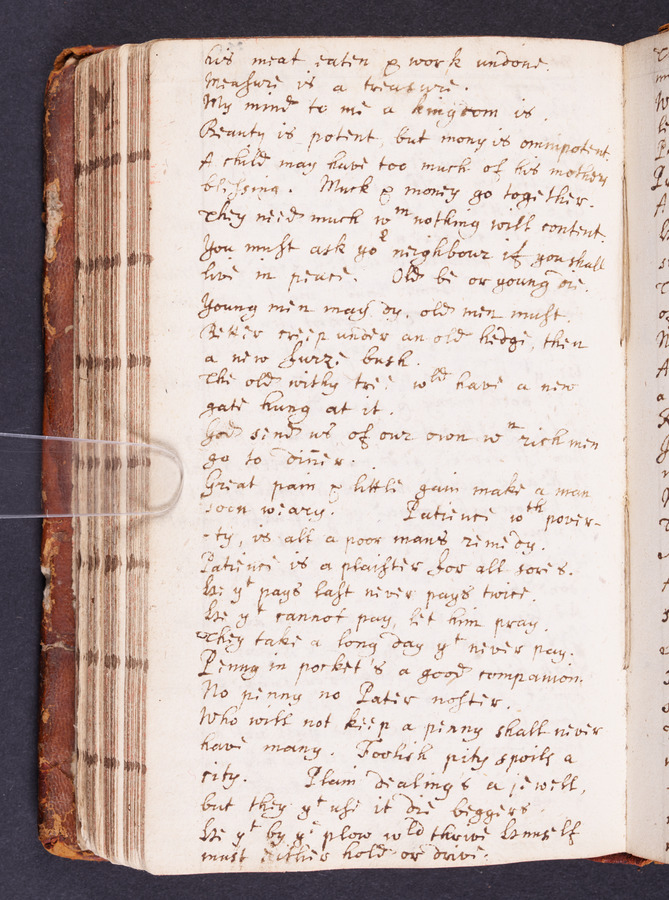 his meat eaten & work undone.
Measure is a treasure.
My mind to me a kingdom is.
Beauty is potent, but mony is omnipotent.
A child may have too much of his mothers
blessing. Muck & money go together.
They need much wm nothing will content.
You must ask yor neighbour if you shall
live in peace. Old be or young die.
Young men may dy, old men must.
Better creep under an old hedge, then
a new furze bush.
The old withy tree wld have a new
gate hung at it.
God send us of our own wn rich men
go to diner.
Great pain & little gain make a man
soon weary. Patience wth pover-
-ty, is all a poor mans remedy.
Patience is a plaister for all sores.
He yt pays last never pays twice.
He yt cannot pay, let him pray.
They take a long day yt never pay.
Penny in pocket's a good companion.
No penny no Pater noster.
Who will not keep a penny shall never
have many. Foolish pity spoils a
city. Plain dealing's a jewell,
but they yt use it die beggers.
He yt by ye plow wld thrive himself
must either hold or drive.